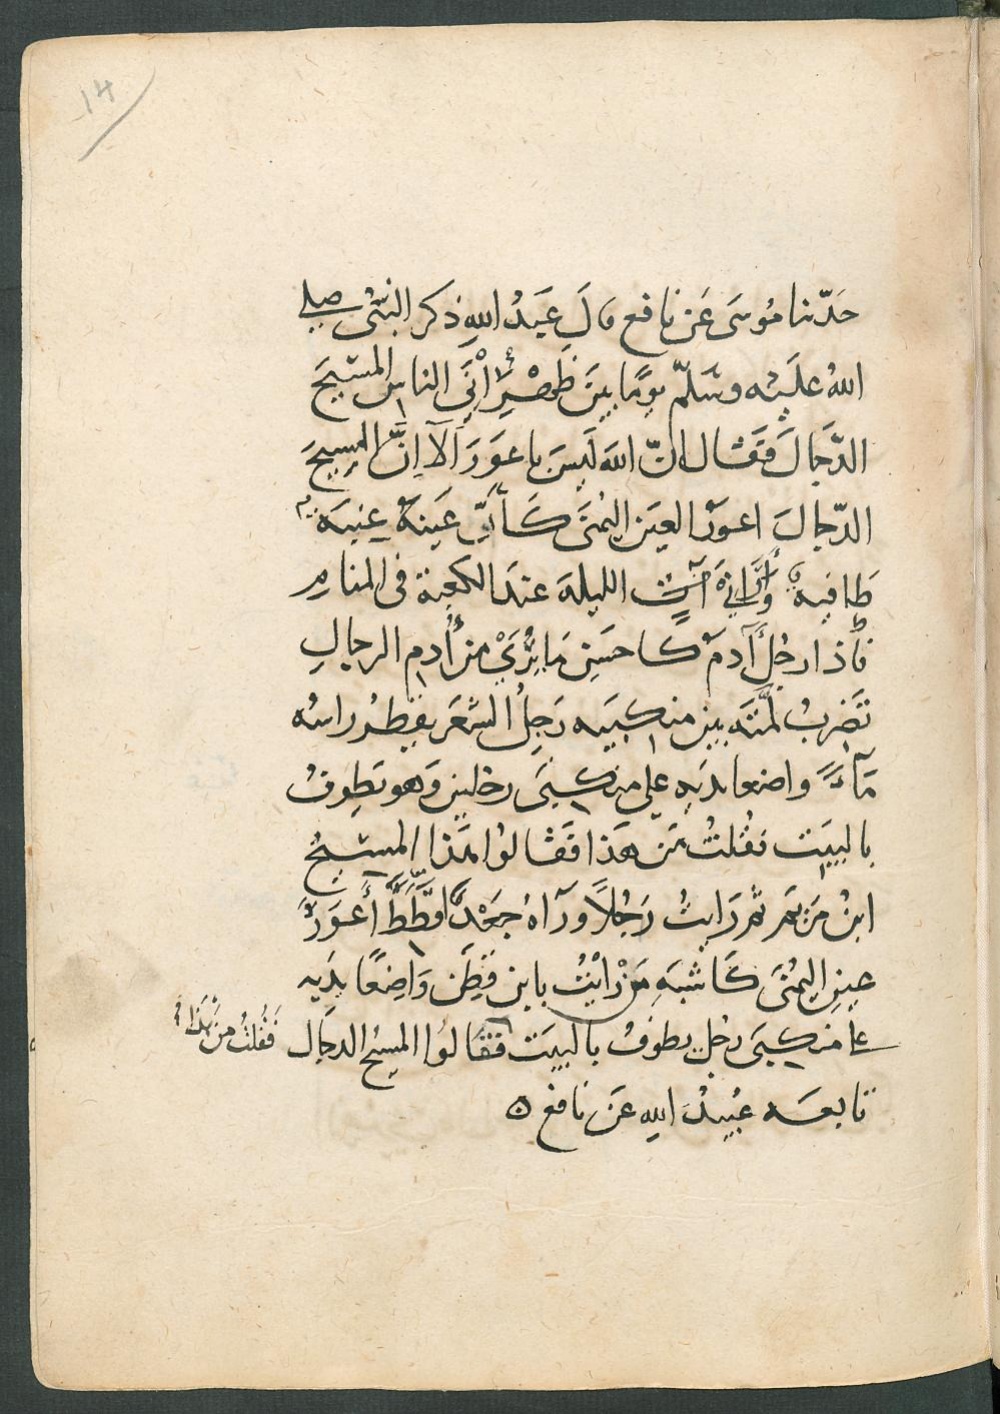 14
حَدّثنا مُوسَى عَن نافع قالَ عَبدُ اللهِ ذكر النبىُّ صلى
اللهُ علَيْه وسَلمّ يومًا بينَ ظهْرِانَىِ الناسِ المسِيحَ
الدّجالَ فَقَال انّ اللهَ لَيسَ باعوَرَ اَلَا اِنَّ المسِيحَ
الدّجالَ اعور العيَنِ اليُمنَى كَأنّ عَينَهُ عِنبَه
طَافيه وَارَانى الليلةَ عندَ الكعبة فى المنامِ
فَاذا رجُلٌ آدمُ كاحسَنِ مَا يُرَى من أُدمِ الرجالِ
تَضربُ لمّتُه بين منكبَيه رَجِلُ الشعَر يقطُر راسُه
مَآءً واضعا يدَيهِ على منكبَى رجلينِ وَهو يَطوفُ
بالبيَت فقُلتُ مَن هَذا فَقَالوُا هَذا المسيحُ
ابنُ مَريَم ثم رَايتُ رَجُلاً ورآهُ جَعْدًا قَطَطًا أعوَر
عينِ اليمُنَى كَاشبَهِ مَن رَايْتُ بابن قَطَن وَاضِعًا يدَيه
على منكبَى رجُلٍ يطوفُ بالبيَت فقَالوُا المسيحُ الدجال
فَقُلتُ من هَذا
تابعه عُبيدُ اللهِ عَن نافع ه